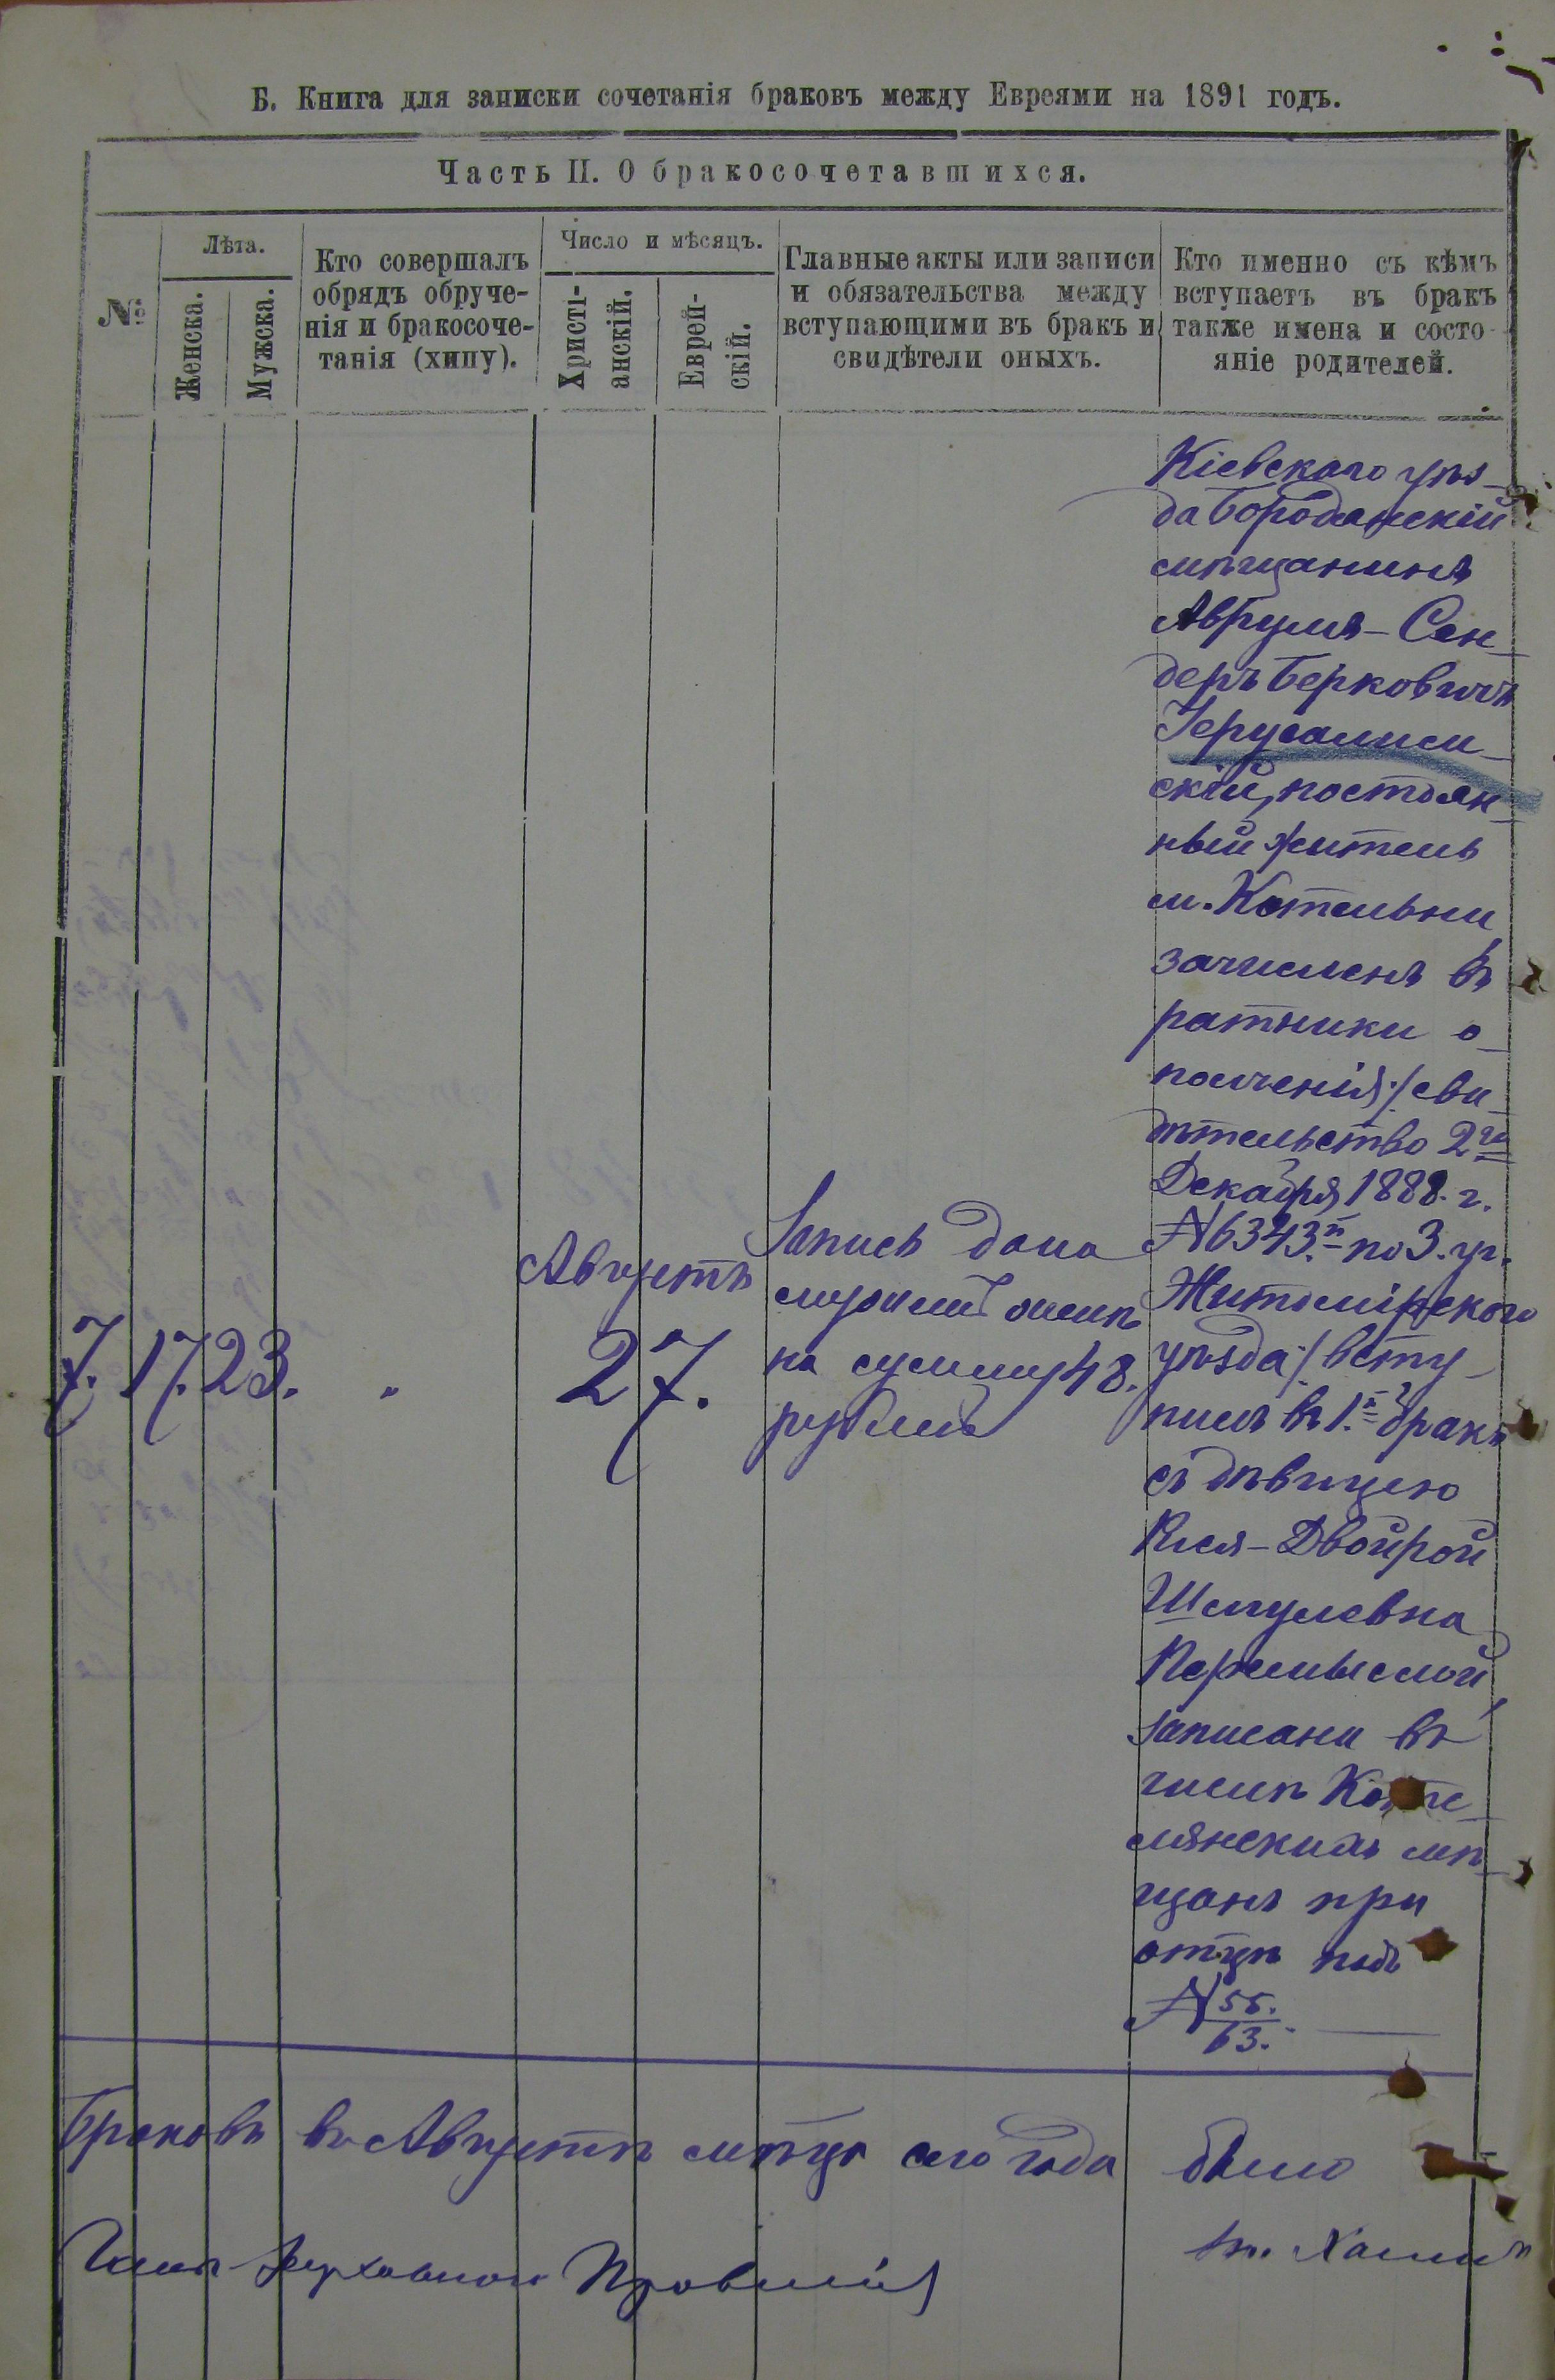 Б. Книга для записки сочетанія браковъ между Евреями на 1891 годъ.
Часть II. О бракосочетавшихся.
№
Лѣта.
Женска.
Мужска.
Кто совершалъ
обрядъ обруче-
нія и бракосоче-
танія (хипу).
Число и мѣсяцъ.
Христі-
анскій.
Еврей-
скій.
Главные акты или записи
и обязательства между
вступающими въ бракъ и
свидѣтели оныхъ.
Кто именно съ кѣмъ
вступаетъ въ бракъ
также имена и состо-
яніе родителей.
7. 17. 23. „
Августъ
27.
Запись дана
на сумму 48.
рублей
Кіевскаго уѣз-
да Бородянскій
мѣщанинъ
Аврумъ-Сен-
деръ Берковичъ
Іерусалим-
скій, постоян-
ный житель
м. Котельни,
зачисленъ въ
ратники о-
полченія /: сви-
дѣтельство 2го
Декабря 1888. г.
№ 6343.й по 3. уч.
Житомірского
уѣзда :/ всту-
пилъ въ 1.й бракъ
съ дѣвицею
Шмулевна
Перемыслой,
записани въ
числѣ Коте-
лянскихъ мѣ-
щанъ при
отцѣ подъ
№ 55./63.
Браковъ въ Августѣ м-цѣ сего года было
Членъ Духовного Правленія